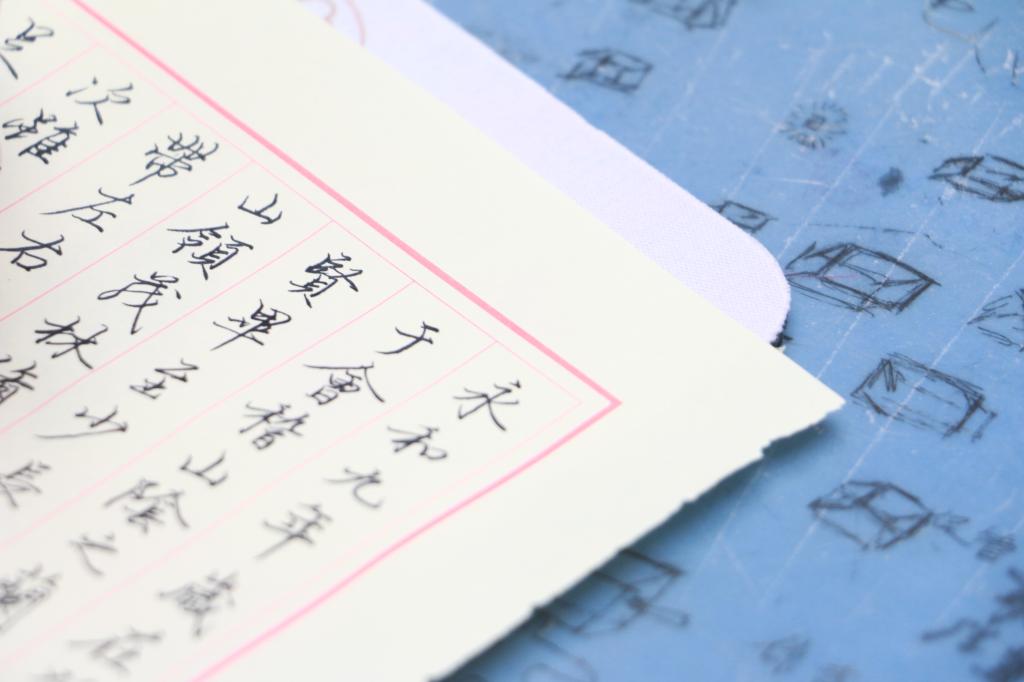 永和九年歲在
于會稽山陰之蘭
賢畢至少長
山領茂林
帶左右
次雖